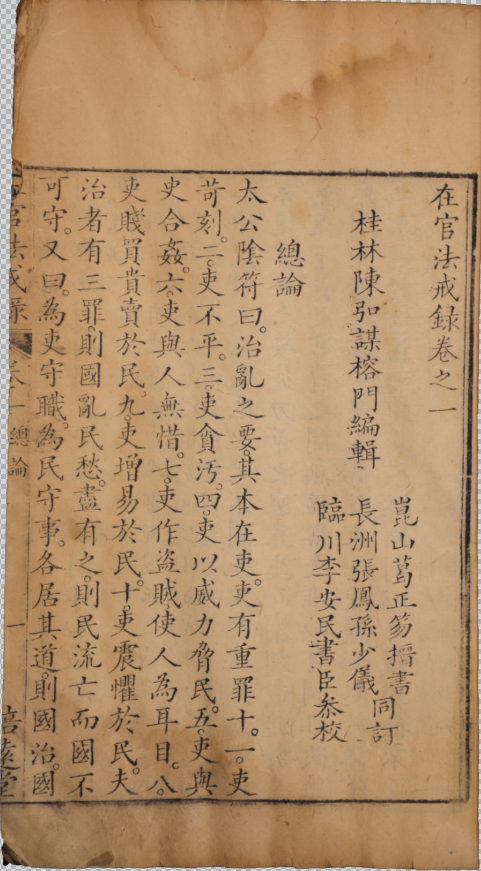 在官法戒錄卷之一
桂林陳弘謀榕門編輯
崑山葛正笏搢書
長洲張鳳孫少儀同訂
臨川李安民書臣叅校
總論
太公陰符曰。治亂之要。其本在吏。吏有重罪十。一。吏
苛刻。二。吏不平。三。吏貪汚。四。吏以威力脅民。五。吏與
史合姦。六。吏與人無惜。七。吏作盜賊使人為耳目。八。
吏賤買貴賣於民。九。吏增易於民。十。吏震懼於民。夫
治者有三罪。則國亂民愁。盡有之。則民流亡而國不
可守。又曰。為吏守職。為民守事。各居其道。則國治。國
官法戒錄 卷一 總論 一 培遠堂